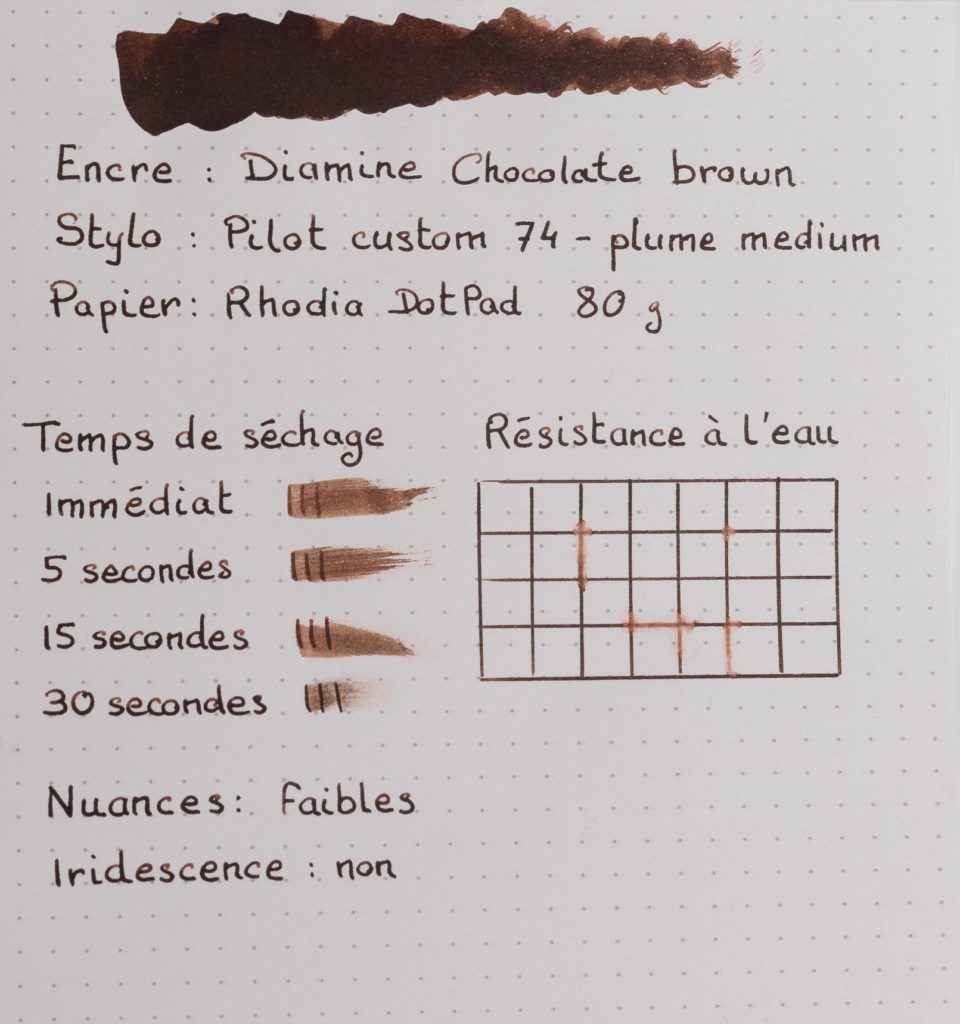 Encre : Diamine Chocolate brown
Stylo : Pilot custom 74 - plume medium
Papier : Rhodia DotPad 80 g
Temps de séchage
Résistance à l'eau
Immédiat
5 secondes
15 secondes
30 secondes
Nuances : Faibles
Iridescence : non